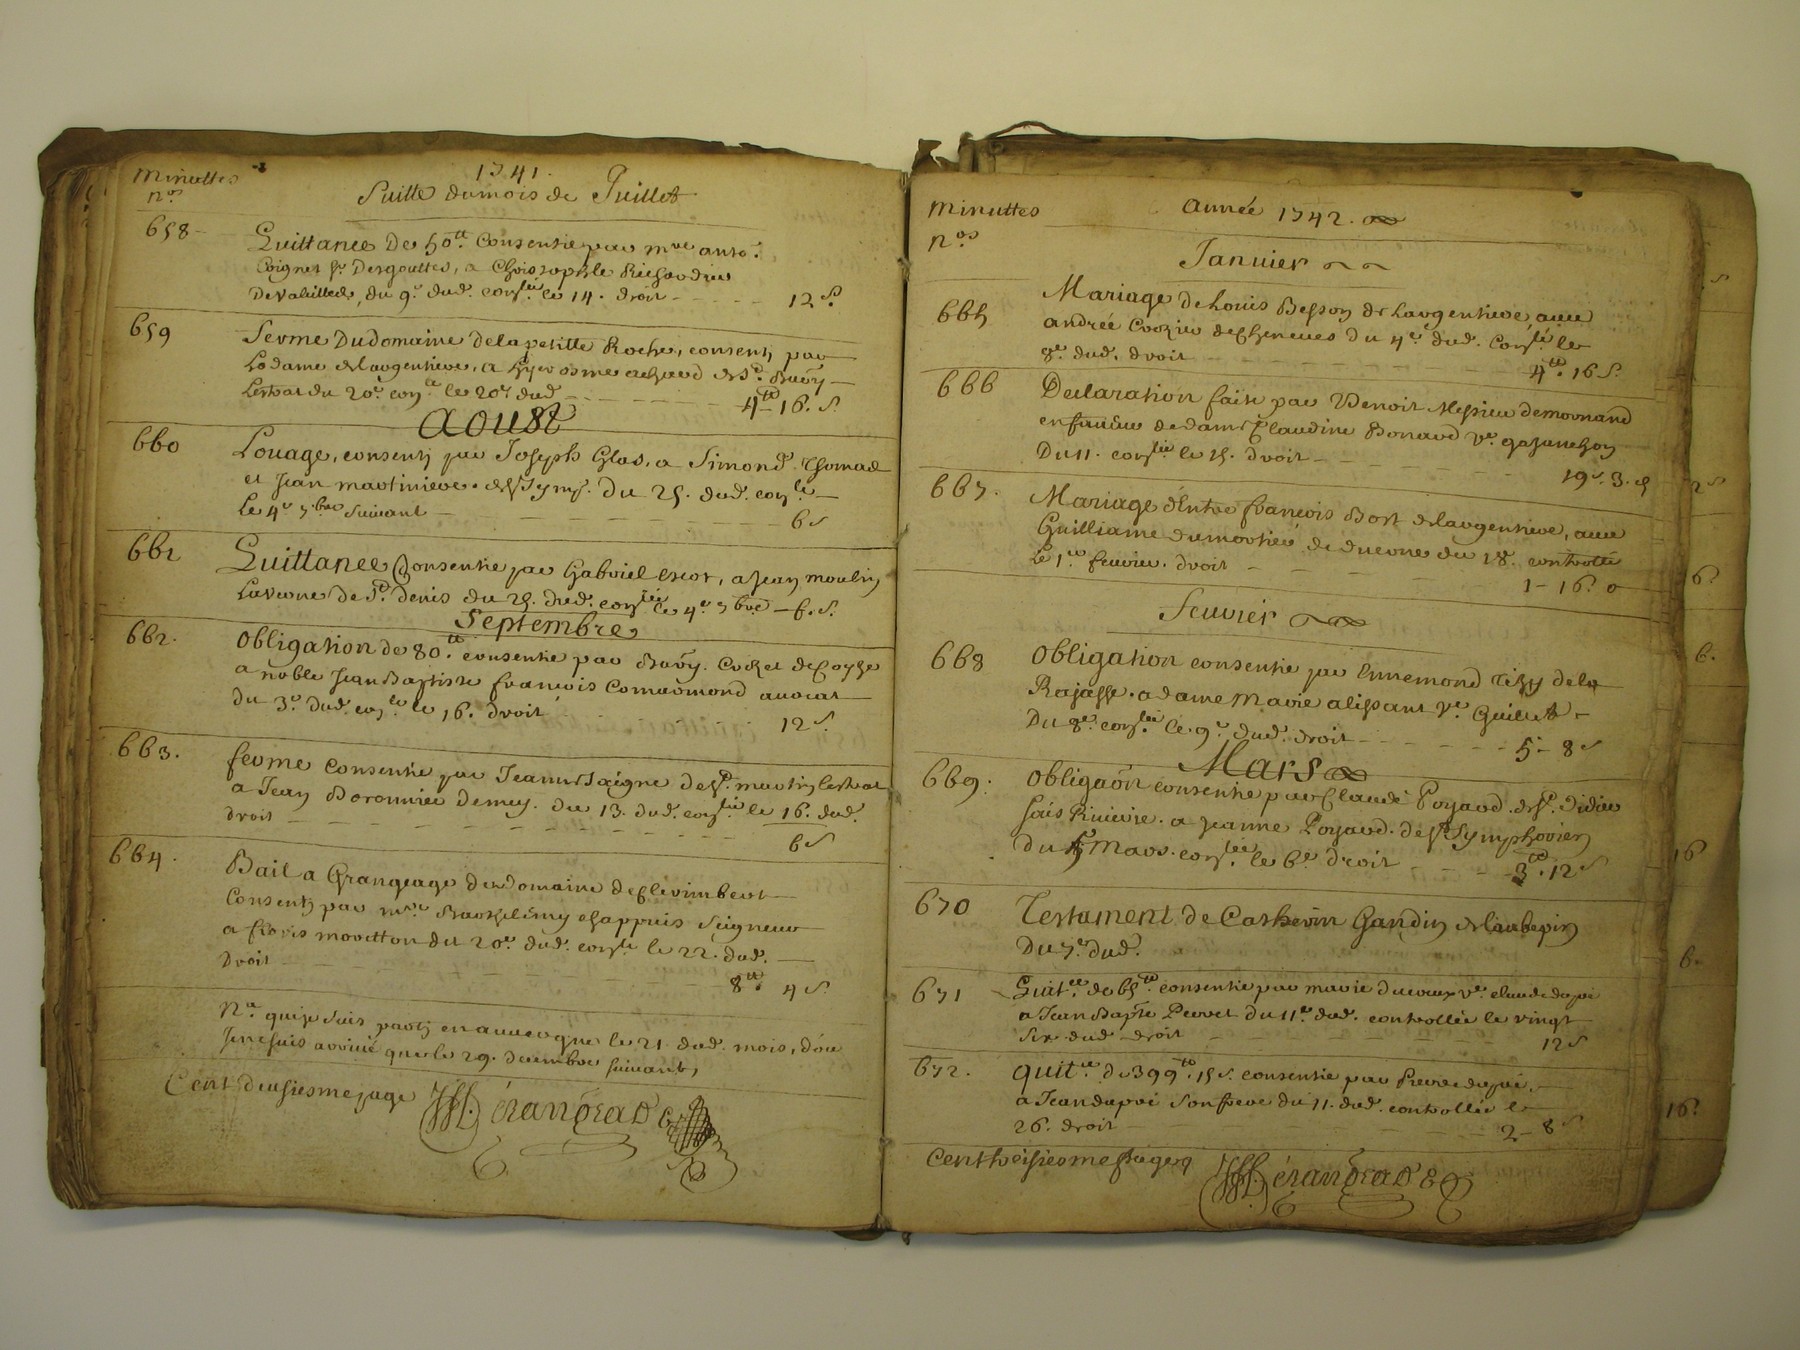 Minuttes
nos
1741.
Suitte du mois de Juillet
658
Quittance De 50tt Consentie par mre anto.
Coignet Sr Desgouttes, a Christophle Richardier
du 9e dud. conlee le 14. droit 12 s.
659
ferme Du domaine de la petitte Roche, consenty par
La dame de largentiere, a
du 20e conlee le 20e dud 4tt 16. s.
Aoust
660
Louage, consenty par Joseph Glas, a Simond Thomas
et Jean martiniere de St Symp. Du 25. dud. conle
Le 4e 7bre suivant 6 s
661
Quittance Consentie par Gabriel a Jean moulin
De St denis du 25. dud. conlee le 4e 7bre 6. s.
Septembre
662.
Obligation de 80tt consentie par
a noble Jean Baptiste francois Comarmond avocat
du 3e dud. conlee le 16. droit 12 s.
663.
ferme Consentie par Jeanne de St martin Lestrat
a Jean Boronnier du 13. dud. conlee le 16. dud.
droit 6 s
664.
Bail a Grangeage du Domaine de Clerimbert
Consenty par mre Barthelemy chappuis Seigneur
a moretton du 20e dud. conle le 22. dud.
Droit 8tt 4 s.
Na que je suis party en auuergne le 21. dud. mois, d'ou
Je ne suis arrivé que le 29. decembre suivant,
Cent deusiesme page
Minuttes
nos
année 1742.
Januier
665
Mariage de Louis Besson de Largentiere, auec
andrée du 4e dud. Conlé le
8e dud. droit 4tt 16 s.
666
Declaration faite par Benoit Messier de mornand
en faueur de dame Claudine Bonard ve
Du 11. conlee le 15. droit 19 s. 3. d
667.
Mariage d'Entre francois Bort de largentiere, auec
Guilliame dumortier de duerne du 18. controllé
Le 1er feurier. droit 1 - 16. 0
Feurier
668
Obligation consentie par Ennemond Tisy de la
Rajasse. a dame Marie alissant ve Guillet
Du 8e conlee le 9e dud. droit 5 - 8 s
Mars
669.
Obligaon consentie par Claude Poyard de St Didier
Sous Riuierie. a jeanne Poyard. de St Symphorien
du 5 Mars. conlee le 6e droit 3tt 12 s
670
Testament de Catherin Gandin de laubepin
Du 7e dud.
671
Quitce de 65tt consentie par marie ducreux ve claude dupré
a Jean Bapte du 11e dud. controllée le vingt
six dud droit 12 s
672.
quitce de 399tt 15 s. consentie par Pierre dupré
a Jean dupré son frere du 11. dud. controllée le
26. droit 2 - 8 s
Cent troisiesme page